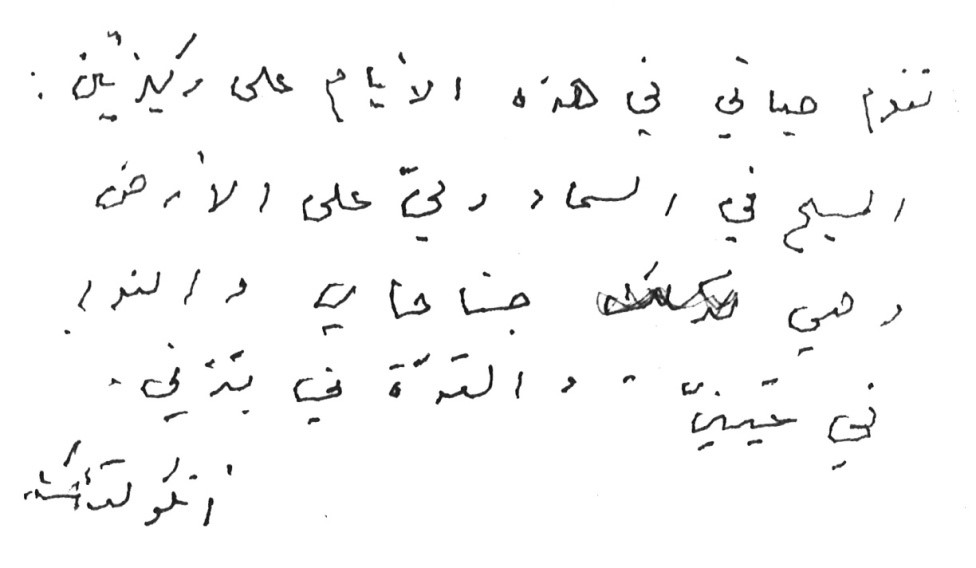 تقوم حياتي في هذه الأيام على ركيزتين :
المسيح في السماء وميّ على الأرض
وهي جناحاي والنور
في عينيّ - والقوّة في بَدَني .